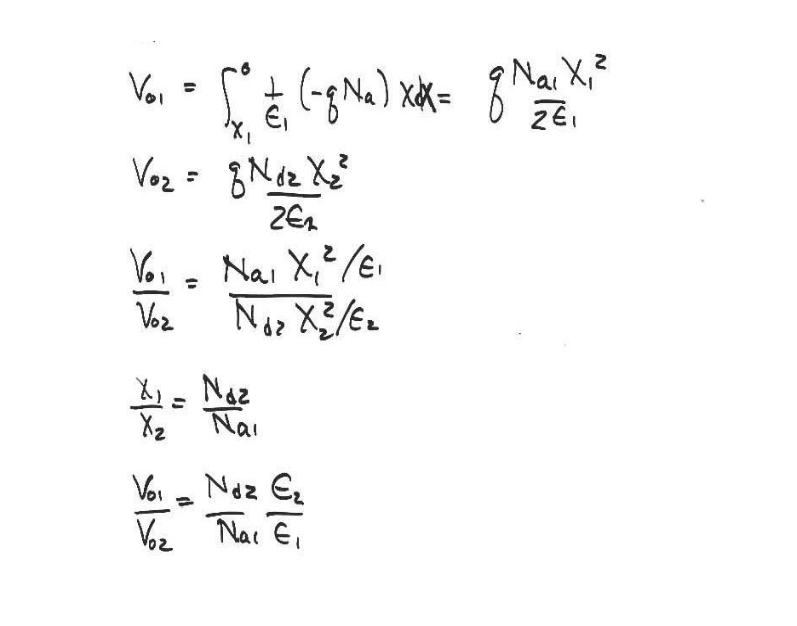 V₀₁ = ∫_{X₁}^{0} 1/ϵ₁ (-qNa) X dX = q Na₁ X₁² / 2ϵ₁
V₀₂ = q Nd₂ X₂² / 2ϵ₂
V₀₁ / V₀₂ = Na₁ X₁² /ϵ₁ / Nd₂ X₂² /ϵ₂
X₁ / X₂ = Nd₂ / Na₁
V₀₁ / V₀₂ = Nd₂ / Na₁ ϵ₂ / ϵ₁